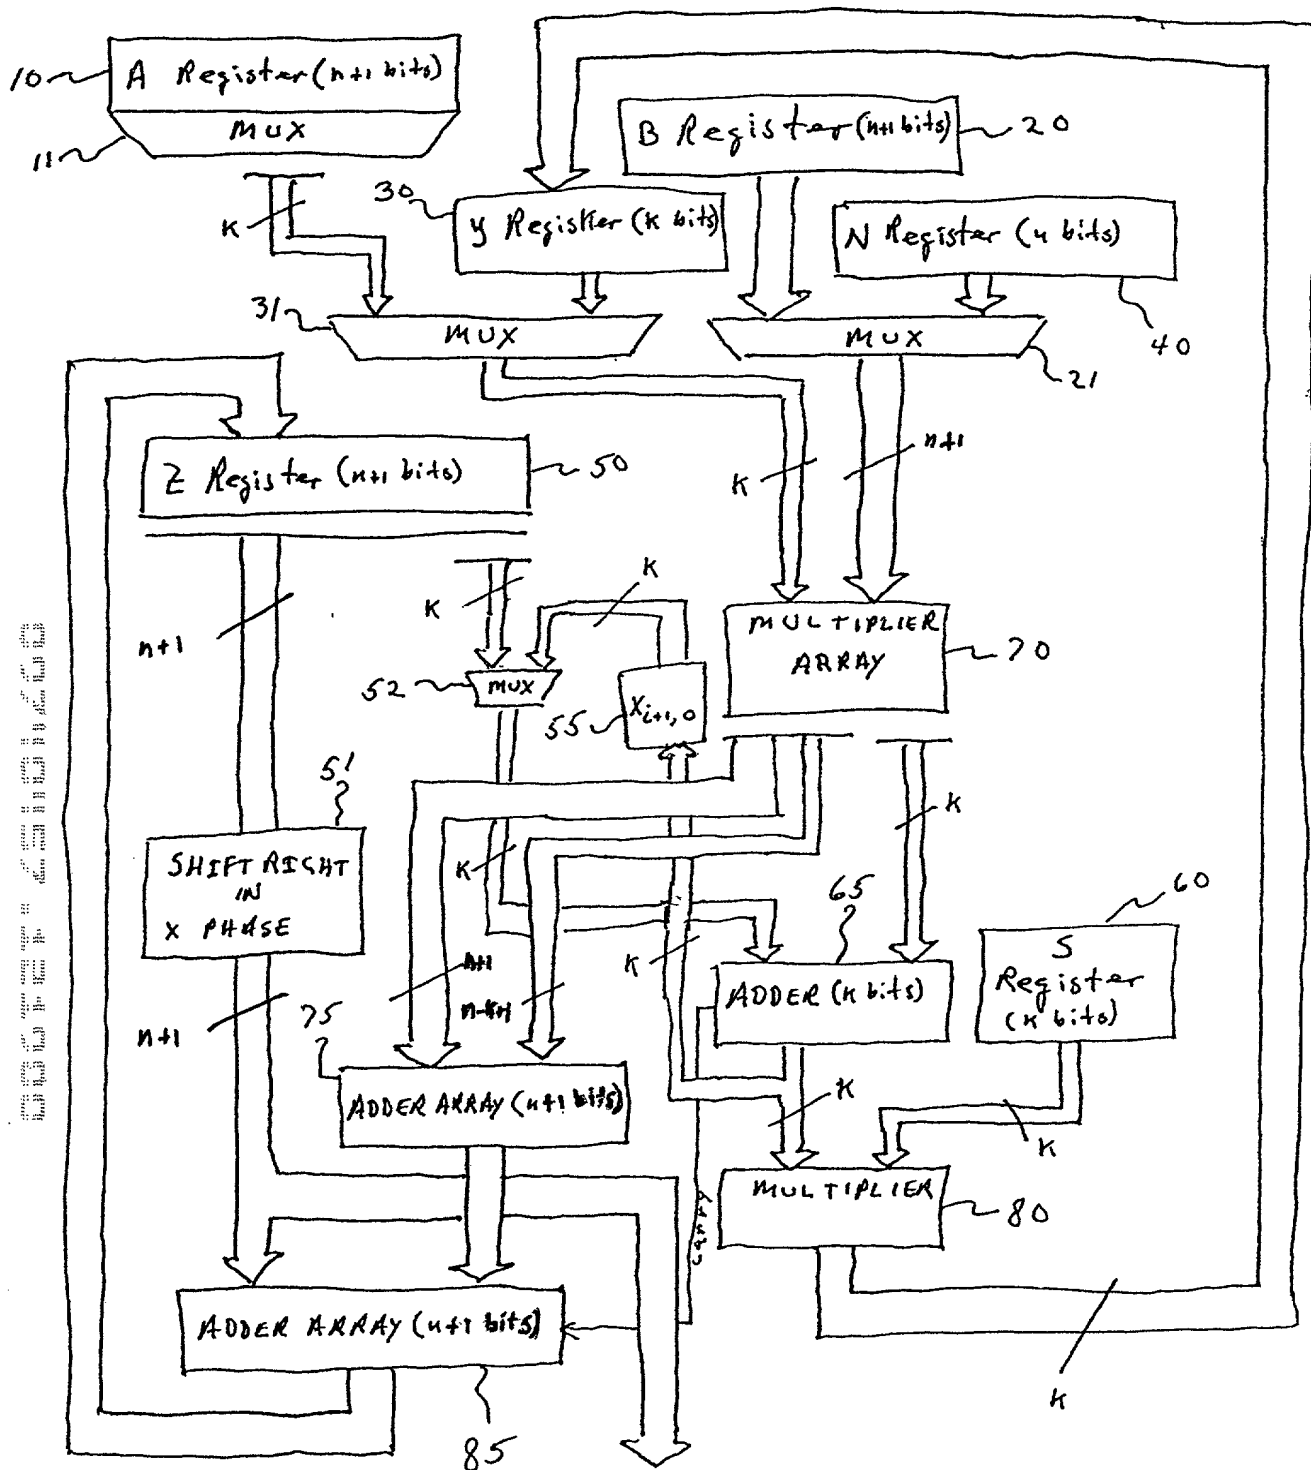 10
A Register (n+1 bits)
MUX
11
K
B Register (n+1 bits)
20
30
Y Register (k bits)
N Register (n bits)
40
31
MUX
MUX
21
K
n+1
Z Register (n+1 bits)
50
n+1
K
K
MULTIPLIER
ARRAY
70
52
MUX
55
X i+1,0
51
SHIFT RIGHT
IN
X PHASE
K
K
65
60
n+1
n-k+1
K
ADDER (k bits)
S
Register
(k bits)
n+1
75
ADDER ARRAY (n+1 bits)
K
K
MULTIPLIER
80
carry
ADDER ARRAY (n+1 bits)
85
K